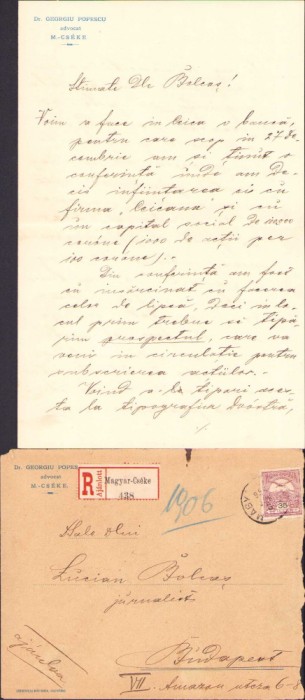 Dr. GEORGIU POPESCU
advocat
M.-CSÉKE.
Stimate Dle Bolcaș!
Voim a face in leica o bancă,
pentru care scop in 27 De-
cembrie am si ținut o
conferință unde am De-
cis infiintarea ei cu
firma „Leicana" și cu
un capital social de
corone (1000 de acții per
100 corone).
Din conferință am fost
eu insărcinat cu facerea
celor de lipsă, Deci in lo-
cul prim trebue să tipă-
rim prospectul, care va
veni in circulatie pentru
subscrierea actiilor.
Voind a-l tipari aces-
ta la tipografia Dvóstră,
Dr. GEORGIU POPES
advocat
M.-CSÉKE.
R
Ajánlott
Magyar-Cséke
438
1906
NAGY
35
Lucian Bolcaș
jurnalist
ajánlva
Budapest
VII. Amazon utcza 6-